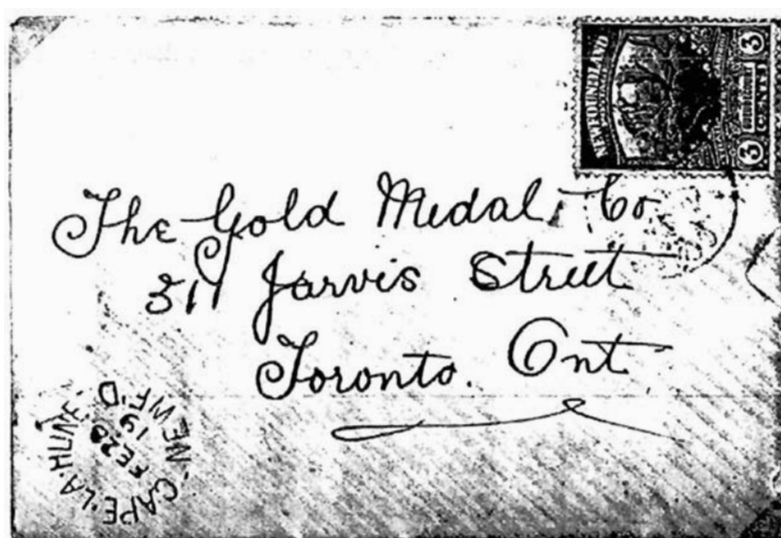 NEWFOUNDLAND
3 CENTS 3
The Gold Medal, Co
311 Jarvis Street
Toronto. Ont
CAPE·LA·HUNE·
NEWF'D
FE 28
19